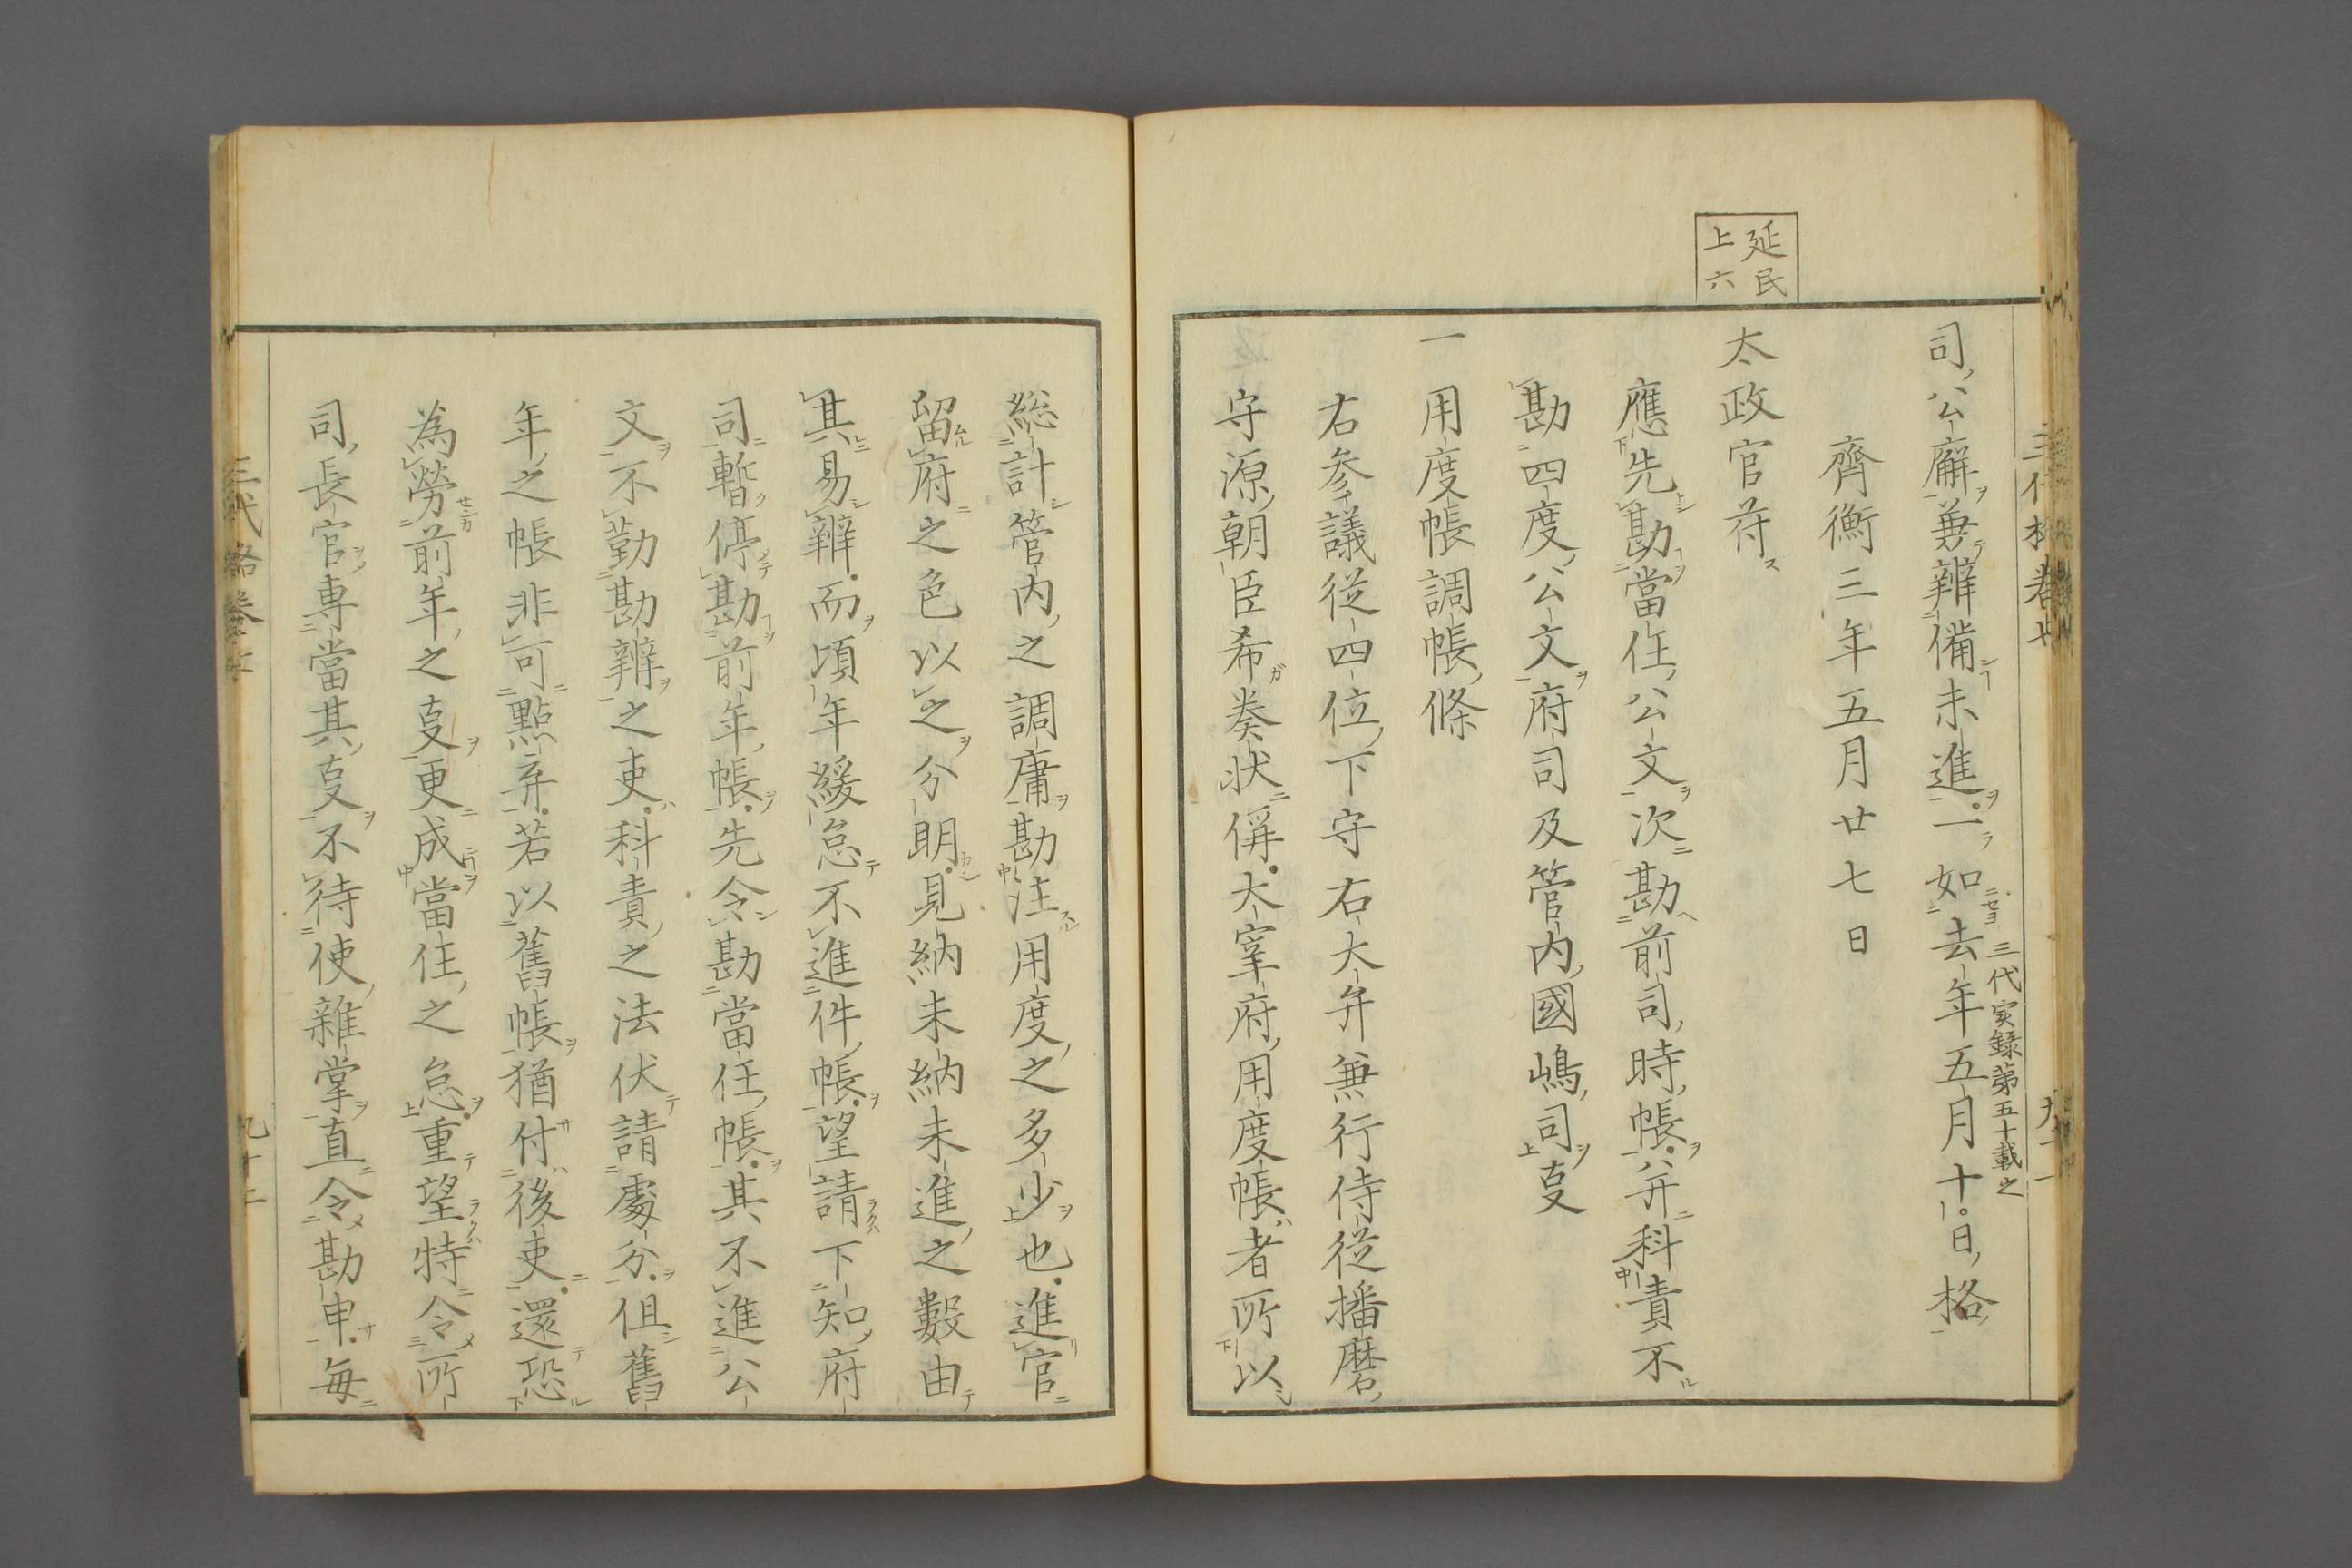 延民
上六
司公廨兼辨備未進一如去年五月十日格
三代実録第五十載之
齊衡三年五月廿七日
太政官苻
應先勘當任公文次勘前司時帳并科責不
勘四度公文府司及管内國嶋司㕝
一用度帳調帳條
右参議從四位下守右大弁兼行侍從播磨
守源朝臣希奏状偁大宰府用度帳者所以
総計管内之調庸勘注用度之多少也進官
留府之色以之分明見納未納未進之數由
其易辨而頃年緩怠不進件帳望請下知府
司暫停勘前年帳先令勘當任帳其不進公
文不勤勘辨之吏科責之法伏請處分但舊
年之帳非可點弃若以舊帳猶付後吏還恐
為勞前年之㕝更成當任之怠重望特令所
司長官專當其㕝不待使雜掌直令勘申毎
三代格巻七
九十二